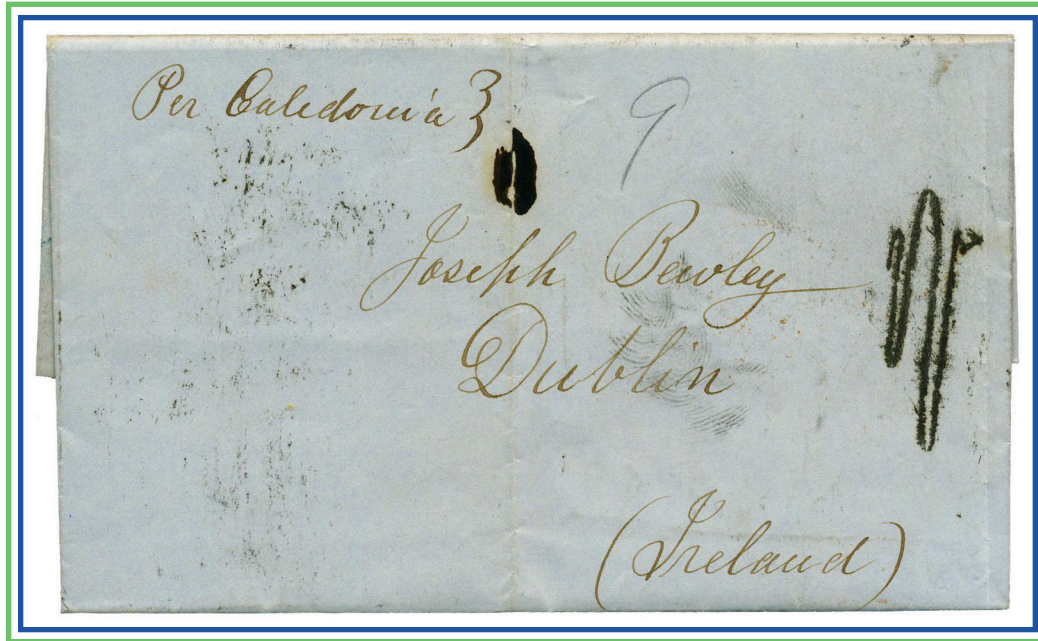 Per Caledonia
9
Joseph Bewley
Dublin
(Ireland)